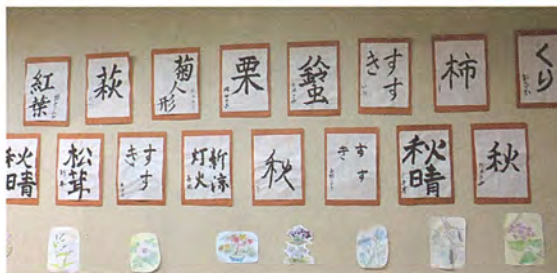 紅葉
萩
菊人形
栗
鈴虫
すすき
柿
くり
秋晴
松茸
すすき
新涼
灯火
秋
すすき
秋晴
秋